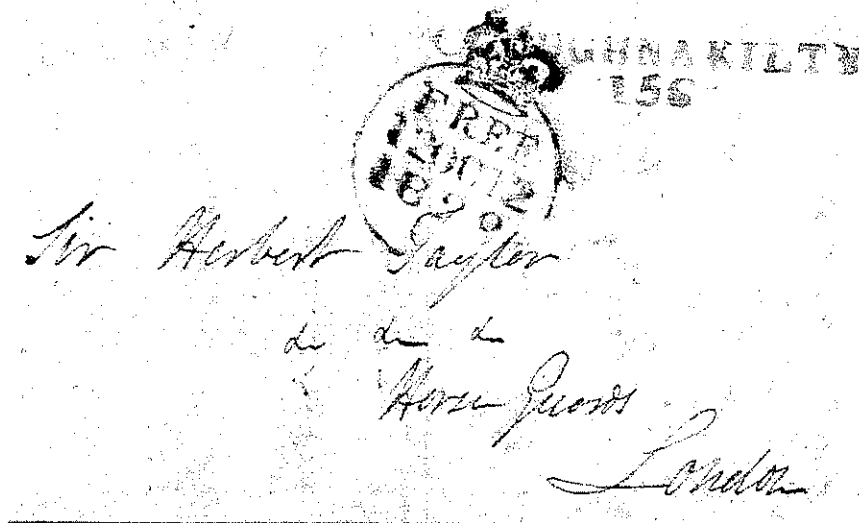 CLOUGHNAKILTY
156
FREE
12 OC 12
1829
Sir Herbert Taylor
&c &c &c
Horse Guards
London